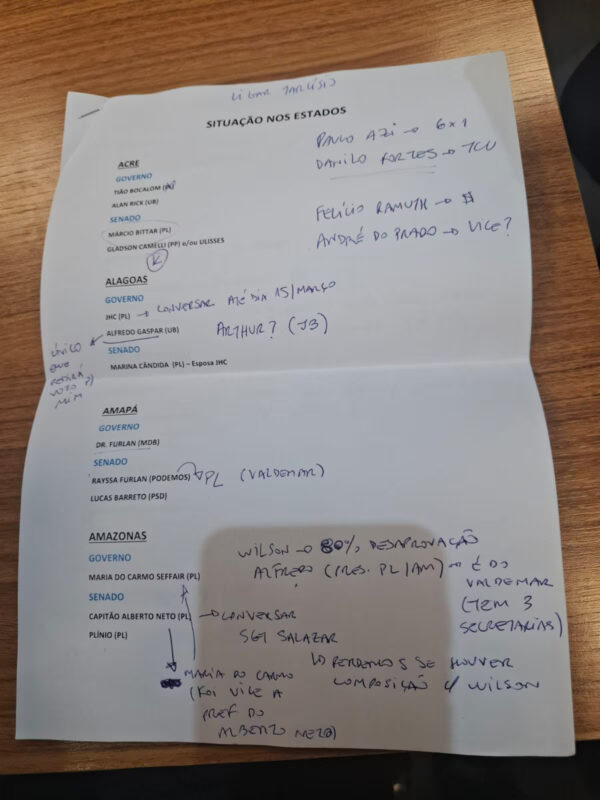 LIGAR TARCÍSIO
SITUAÇÃO NOS ESTADOS
PAULO AZI → 6x1
DANILO FORTES → TCU
FELÍCIO RAMUTH → $
ANDRÉ DO PRADO → VICE?
ACRE
GOVERNO
TIÃO BOCALOM
ALAN RICK (UB)
SENADO
MÁRCIO BITTAR (PL)
GLADSON CAMELLI (PP) e/ou ULISSES
ALAGOAS
GOVERNO
JHC (PL) → CONVERSAR ATÉ DIA 15/MARÇO
ALFREDO GASPAR (UB)
ARTHUR? (JB)
ÚNICO
QUE
PEDIRÁ
VOTO P/
MIM
SENADO
MARINA CÂNDIDA (PL) – Esposa JHC
AMAPÁ
GOVERNO
DR. FURLAN (MDB)
SENADO
RAYSSA FURLAN (PODEMOS) → PL (VALDEMAR)
LUCAS BARRETO (PSD)
AMAZONAS
GOVERNO
MARIA DO CARMO SEFFAIR (PL)
SENADO
CAPITÃO ALBERTO NETO (PL) → CONVERSAR
PLÍNIO (PL)
WILSON → 80% DESAPROVAÇÃO
ALFREDO (PRES. PL/AM) → É DO
VALDEMAR
(TEM 3
SECRETARIAS)
SGT SALAZAR
↳ PERDEMOS SE HOUVER
COMPOSIÇÃO C/ WILSON
MARIA DO CARMO
(FOI VICE A
PREF DO
ALBERTO NETO)